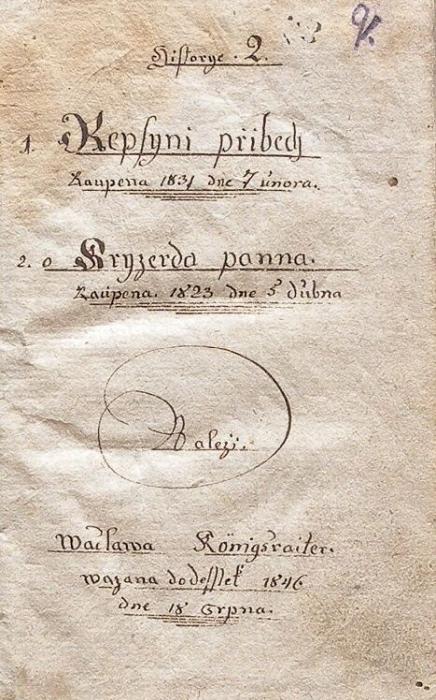 Historye. 2.
1. Kepsyni přibech
Kaupena 1831 dne 7 února.
2. o Gryzerda panna.
Kaupena. 1823 dne 5 dubna
Nalezi.
Waclawa Königsraiter.
wazana do dessek 1846
dne 18 Srpna.